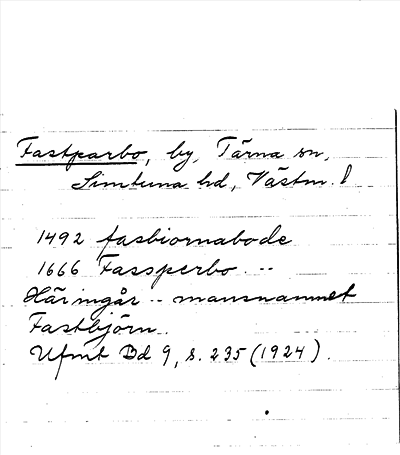 Fastparbo, by, Tärna sn,
Simtuna hd, Västm. l
1492 fasbiornabode
1666 Fassperbo. --
Här ingår -- mansnamnet
Fastbjörn.
Ufmt Bd 9, s. 235 (1924).